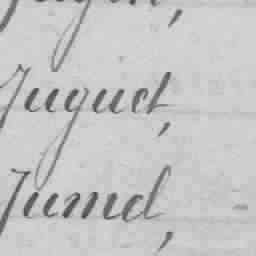 Juguet,
Jumel,